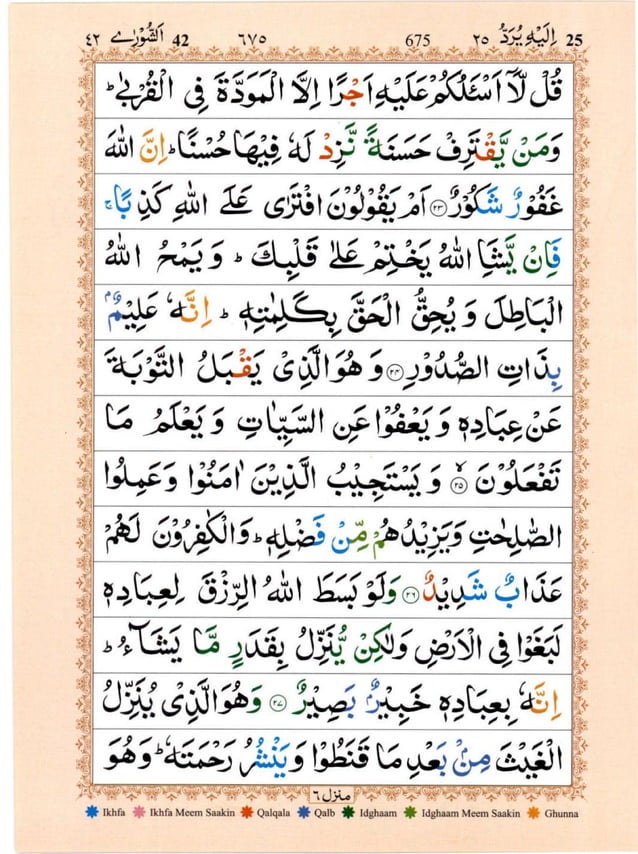 ٤٢ اَلشُّوْرٰى 42 ٦٧٥ 675 ٢٥ اِلَيْهِ يُرَدُّ 25
قُلْ لَّاۤ اَسْـَٔلُكُمْ عَلَيْهِ اَجْرًا اِلَّا الْمَوَدَّةَ فِى الْقُرْبٰىؕ
وَمَنْ يَّقْتَرِفْ حَسَنَةً نَّزِدْ لَهٗ فِيْهَا حُسْنًاؕ اِنَّ اللهَ
غَفُوْرٌ شَكُوْرٌ ﴿٢٣﴾ اَمْ يَقُوْلُوْنَ افْتَرٰى عَلَى اللهِ كَذِبًاۚ
فَاِنْ يَّشَاِ اللهُ يَخْتِمْ عَلٰى قَلْبِكَؕ وَيَمْحُ اللهُ
الْبَاطِلَ وَيُحِقُّ الْحَقَّ بِكَلِمٰتِهٖؕ اِنَّهٗ عَلِيْمٌۢ
بِذَاتِ الصُّدُوْرِ ﴿٢٤﴾ وَهُوَ الَّذِىْ يَقْبَلُ التَّوْبَةَ
عَنْ عِبَادِهٖ وَيَعْفُوْا عَنِ السَّيِّاٰتِ وَيَعْلَمُ مَا
تَفْعَلُوْنَۙ ﴿٢٥﴾ وَيَسْتَجِيْبُ الَّذِيْنَ اٰمَنُوْا وَعَمِلُوا
الصّٰلِحٰتِ وَيَزِيْدُهُمْ مِّنْ فَضْلِهٖؕ وَالْكٰفِرُوْنَ لَهُمْ
عَذَابٌ شَدِيْدٌ ﴿٢٦﴾ وَلَوْ بَسَطَ اللهُ الرِّزْقَ لِعِبَادِهٖ
لَبَغَوْا فِى الْاَرْضِ وَلٰكِنْ يُّنَزِّلُ بِقَدَرٍ مَّا يَشَآءُؕ
اِنَّهٗ بِعِبَادِهٖ خَبِيْرٌۢ بَصِيْرٌ ﴿٢٧﴾ وَهُوَ الَّذِىْ يُنَزِّلُ
الْغَيْثَ مِنْۢ بَعْدِ مَا قَنَطُوْا وَيَنْشُرُ رَحْمَتَهٗؕ وَهُوَ
منزل ٦
Ikhfa Ikhfa Meem Saakin Qalqala Qalb Idghaam Idghaam Meem Saakin Ghunna